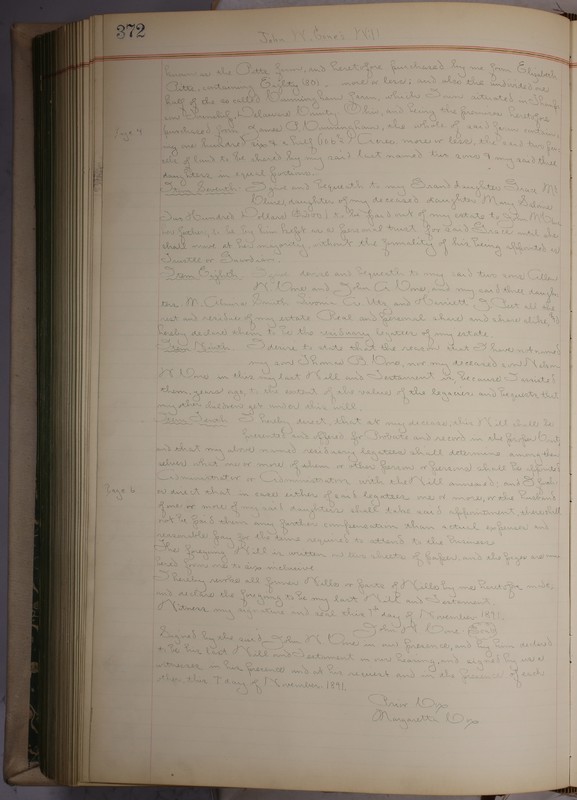 372
John W. Vore 1891
known as the Pitts farm, and heretofore purchased by me from Elizabeth
Pitts, containing Eighty (80) more or less; and also the undivided one
half of the so called Cunningham farm, Said farm situated in
in Township, Delaware County, Ohio, and being the premises heretofore
Page 4
purchased from James A. Cunningham; the whole of said farm contain-
ing one hundred six & a half (106½) Acres more or less, the said two par-
cels of land to be shared by my said last named two sons & my said three
daughters in equal portions.
Item Seventh. I give and bequeath to my Grand daughter Grace M.
daughter of my deceased daughter Mary
Two Hundred Dollars ($200) to be paid out of my estate to John
her father, to be by him kept as a personal trust for said Grace until she
shall arrive at her majority, without the formality of his being appointed as
Trustee or Guardian.
Item Eighth. I give devise and bequeath to my said two sons
W. Vore and John A. Vore, and my said three daugh-
ters M. Smith and Harriett all the
rest and residue of my estate Real and personal share and share alike, & I
hereby declare them to be the residuary legatees of my estate.
Item Ninth. I desire to state that the reason that I have not named
my son Thomas B. Vore, nor my deceased son
W Vore in this my last Will and Testament is, because I assisted
them, years ago, to the extent of the value of the legacies and bequests that
my other children get under this will.
Item Tenth. I hereby direct, that at my decease, this Will shall be
presented and offered for Probate and record in the proper Court,
and that my above named residuary legatees shall determine among them-
selves what one or more of them or other person or persons shall be appointed
Administrator or Administrators with the Will annexed; and I further
Page 6
direct that in case either of said legatees one or more, or the husband
of one or more of my said daughters shall take said appointment there shall
not be paid them any further compensation than actual expenses and
reasonable pay for the time required to attend to the business.
The foregoing Will is written on six sheets of paper and the pages are num-
bered from one to six inclusive.
I hereby revoke all former Wills or parts of Wills by me heretofore made,
and declare the foregoing to be my last Will and Testament.
Witness my signature and seal this 7th day of November 1891.
John W. Vore Seal
Signed by the said John W Vore in our presence, and by him declared
to be his last Will and Testament in our hearing, and signed by us as
witnesses in his presence and at his request and in the presence of each
other this 7 day of November 1891.